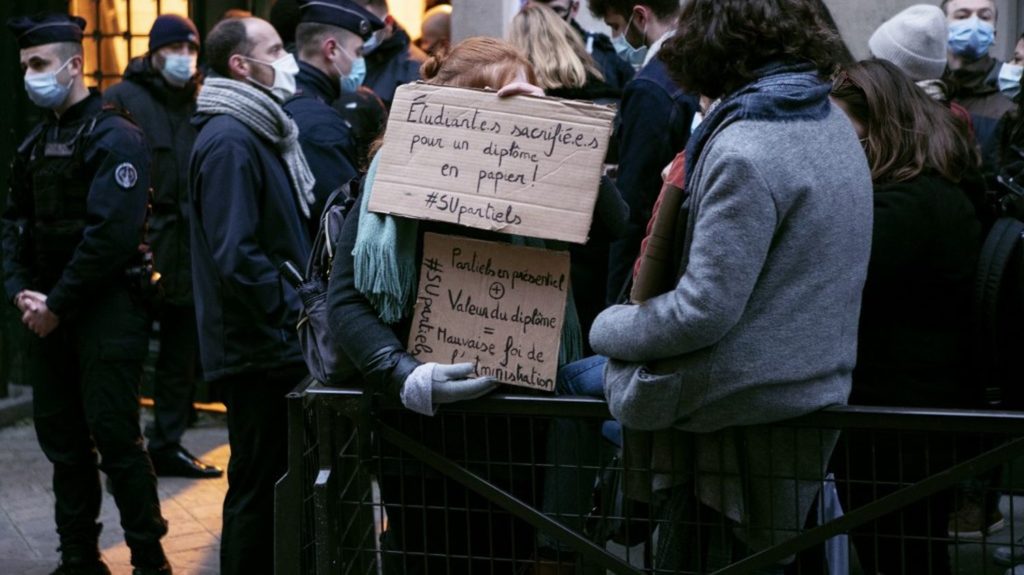 Étudiant.e.s sacrifié.e.s
pour un diplôme
en papier !
#SUpartiels
Partiels en présentiel
+
Valeur du diplôme
=
Mauvaise foi de
l'
#SUpartiels